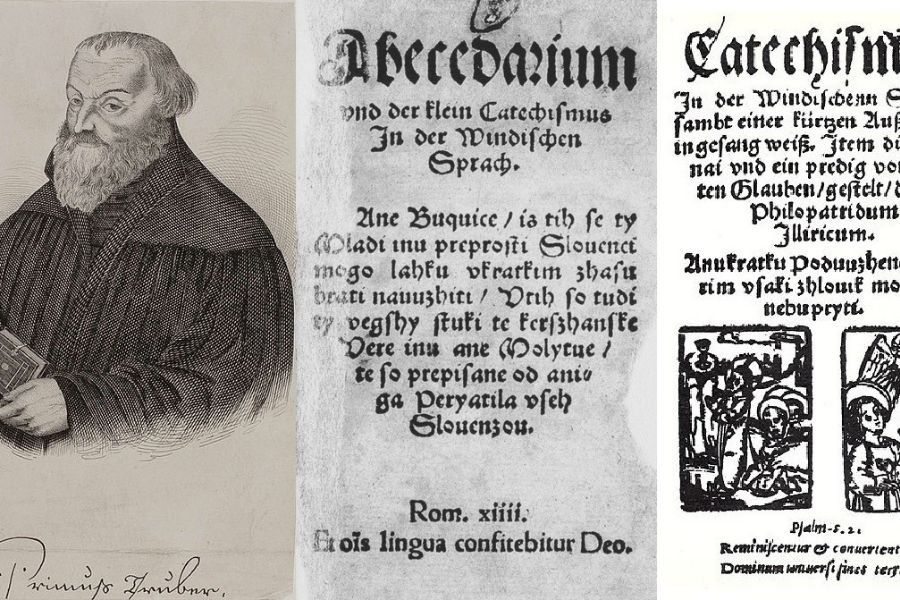 Primuss Truber.
Abecedarium
vnd der klein Catechismus
In der Windischen
Sprach.
Ane Buquice / is tih se ty
Mladi inu preprosti Slouenci
mogo lahku vkratkim zhasu
brati nauuzhiti / Vtih so tudi
ty vegshy stuki te kerszhanske
Vere inu ane Molytue /
te so prepisane od aniga
Peryatila vseh
Slouenzou.
Rom. xiiii.
Et ois lingua confitebitur Deo.
Catechismu
In der Windischenn S
sambt einer kürtzen Auß
in gesang weiß. Item di
nai vnd ein predig vo
ten Glauben / gestelt /
Philopatridum
Illiricum.
Anu kratku Poduuzhen
rim vsaki zhlouik mo
nebu pryti.
Psalm. 2.
Reminiscentur & conuertent
Dominum uniuersi fines terr